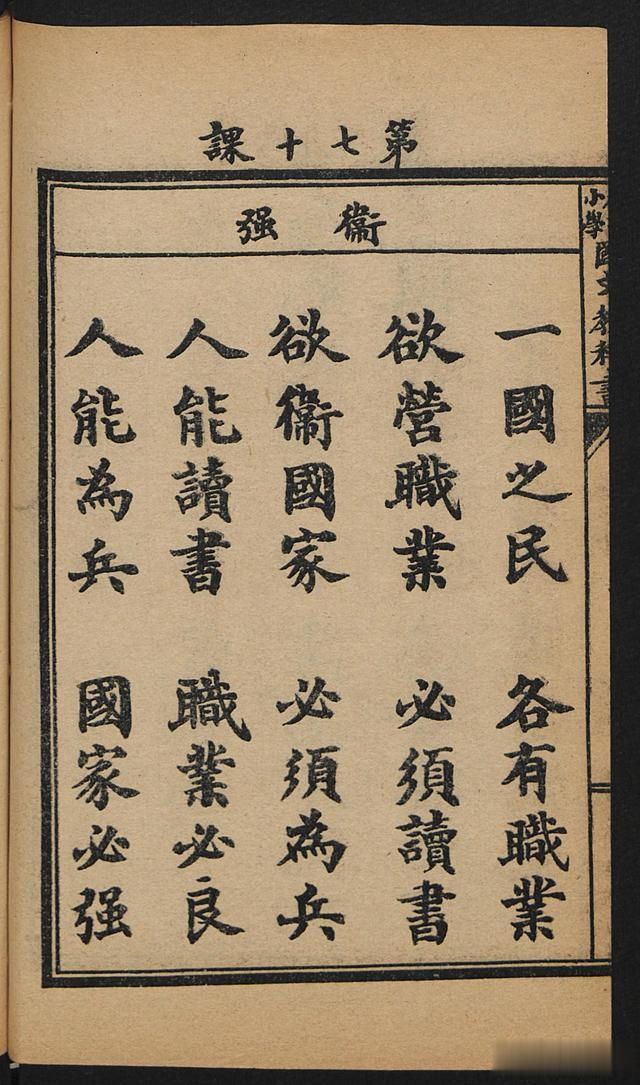 第七十課
衞强
一國之民 各有職業
欲營職業 必須讀書
欲衞國家 必須為兵
人能讀書 職業必良
人能為兵 國家必强
小學國文教科書